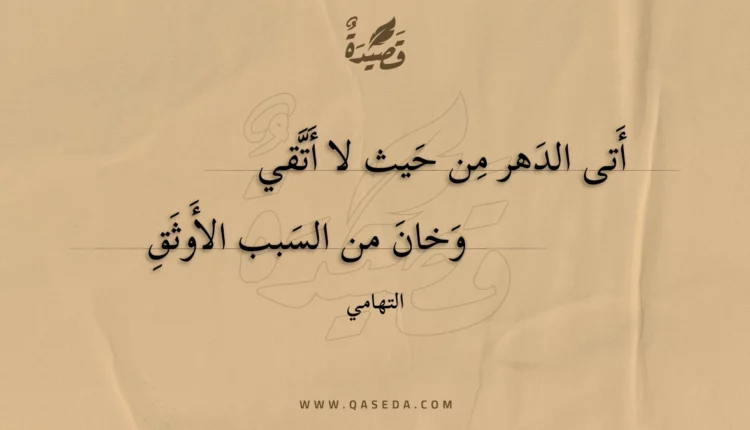 قَصِيدَةٌ
أَتى الدَهر مِن حَيث لا أَتَّقي
وَخانَ من السَبب الأَوثَقِ
التهامي
WWW.QASEDA.COM